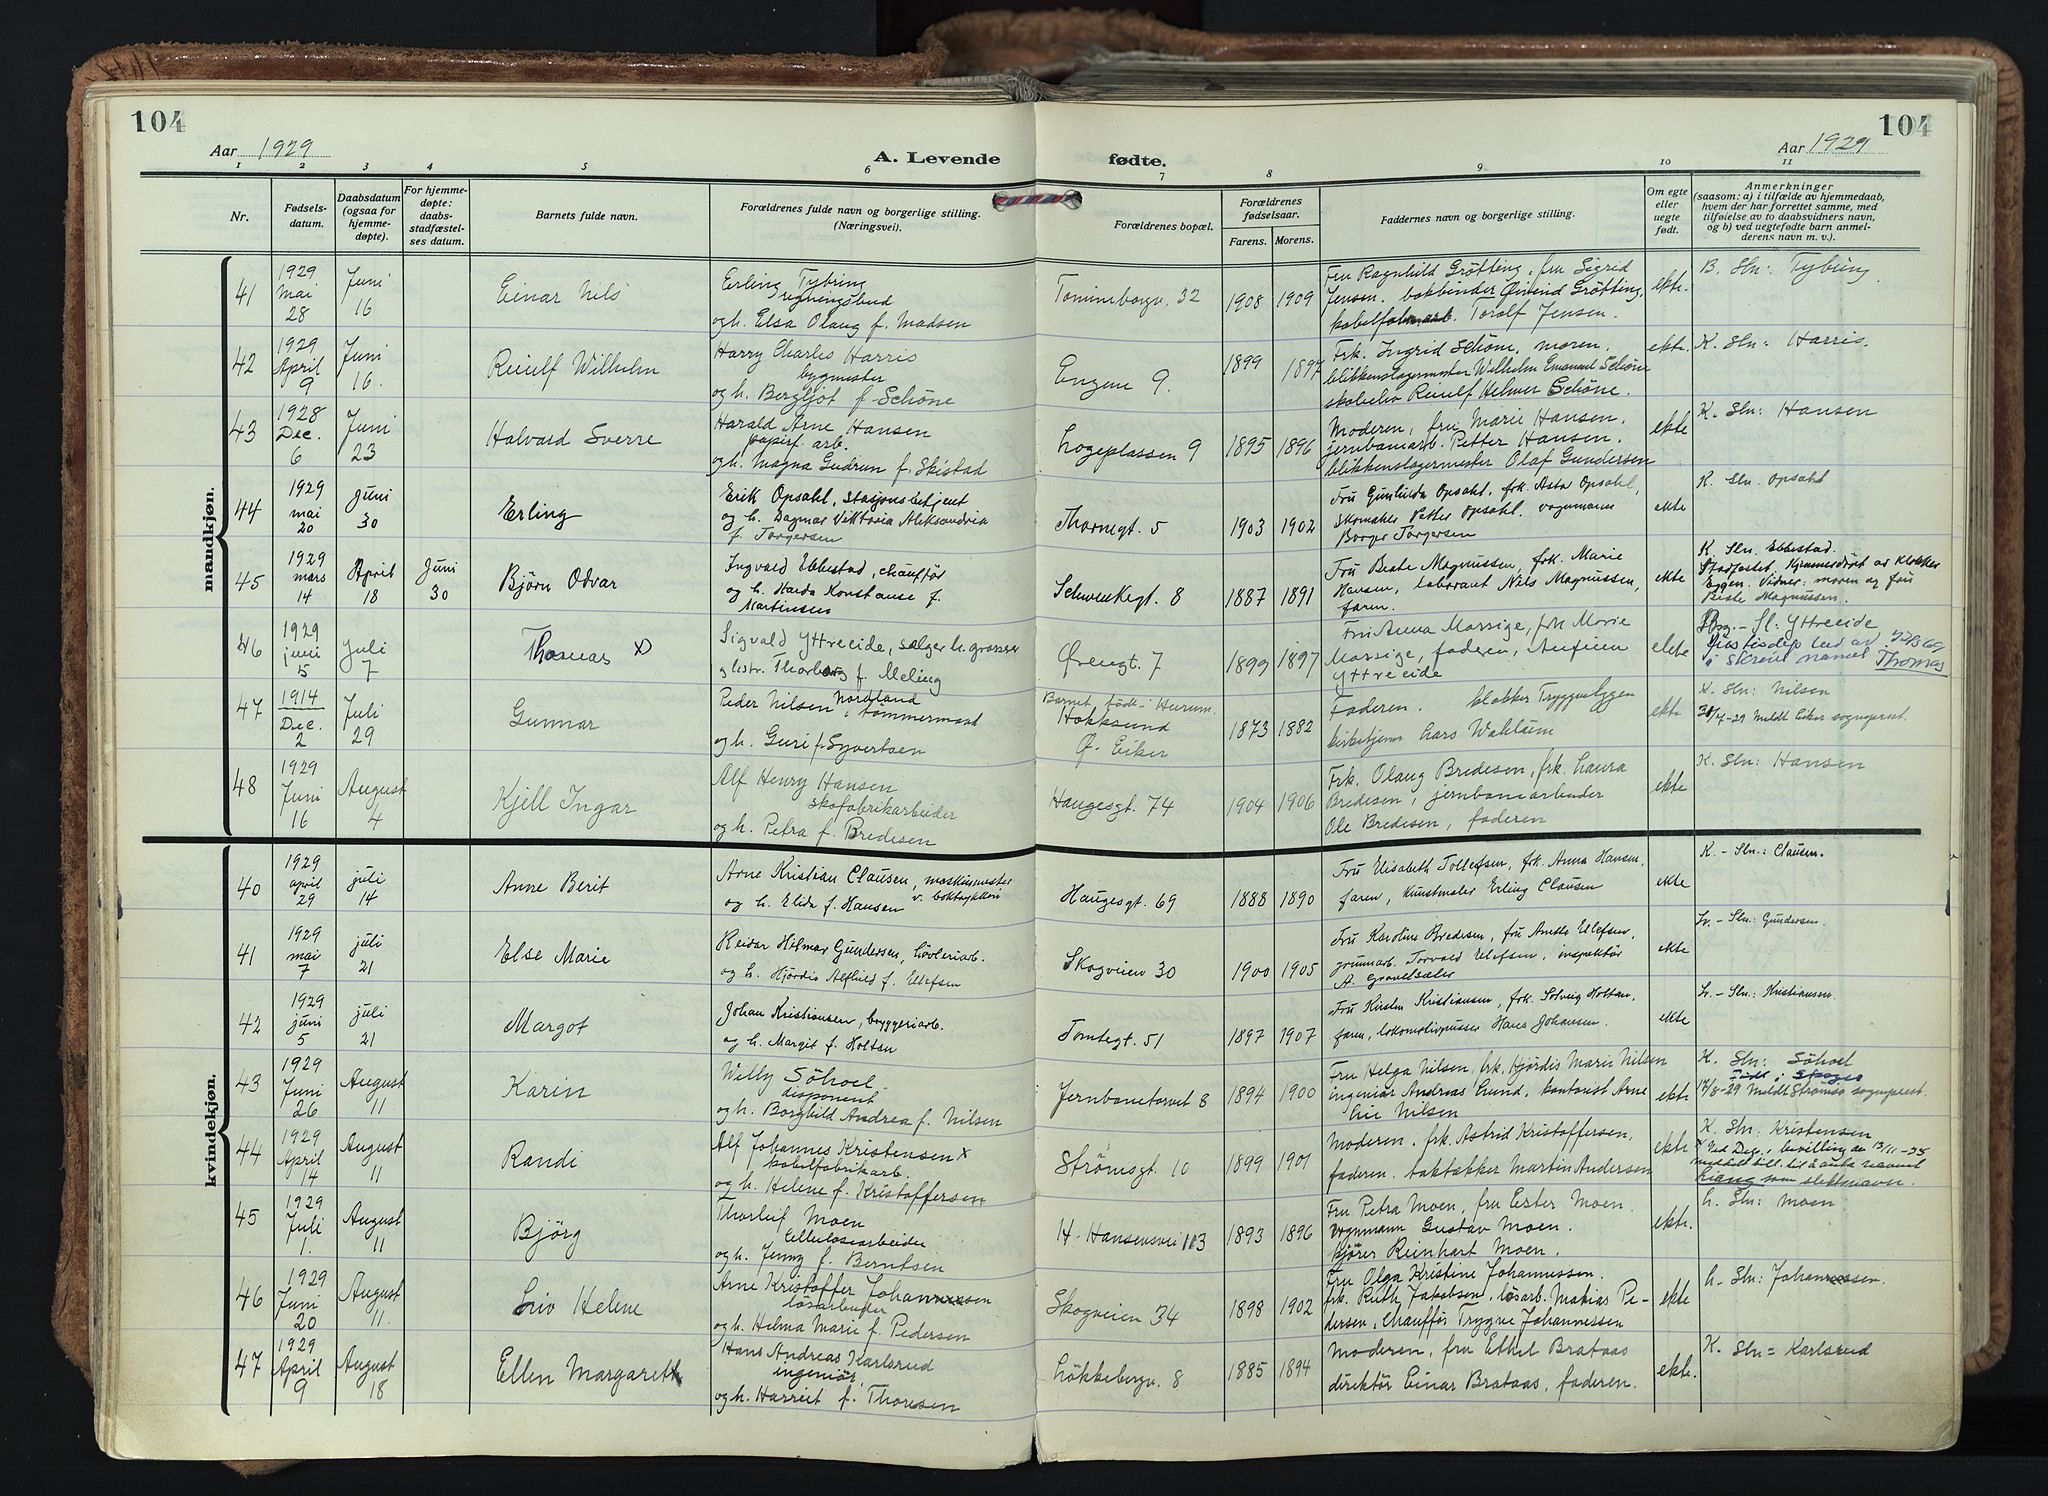 104
104
Aar 1929
A. Levende
fødte.
Aar 1929
1 2 3 4 5 6 7 8 9 10 11
Nr.
Fødsels-
datum.
Daabsdatum
(ogsaa for
hjemme-
døpte).
For hjemme-
døpte:
daabs-
stadfæstel-
ses datum.
Barnets fulde navn.
Forældrenes fulde navn og borgerlige stilling.
(Næringsvei).
Forældrenes bopæl.
Forældrenes
fødselsaar.
Farens. Morens.
Faddernes navn og borgerlige stilling.
Om egte
eller
uegte
født.
Anmerkninger
(saasom: a) i tilfælde av hjemmedaab,
hvem der har forrettet samme, med
tilføielse av to daabsvidners navn,
og b) ved uegtefødte barn anmel-
derens navn m. v.).
mandkjøn.
41
1929
Mai
28
Juni
16
Einar Nils
Erling Tybring
og h. Elsa Olaug f. Madsen
32
1908 1909
Fru Ragnhild Grötting, fru Sigrid
Jensen. bokbinder Öivind Grötting,
Torolf Jensen.
ekte.
B. Sln: Tybring
42
1929
April
9
Juni
16.
Reiulf Wilhelm
Harry Charles Harris
bygmester
og h. Bergljot f. Schöne
Engene 9.
1899 1897
Frk. Ingrid Schöne, moren.
blikkenslagermester Wilhelm Emanuel Schöne
skoleelev Reiulf Helmer Schöne.
ekte.
K. Sln: Harris.
43
1928
Dec.
6
Juni
23
Halvard Sverre
Harald Arne Hansen
papirf. arb.
og h. Magna Gudrun f. Skistad
Logeplassen 9
1895 1896
Moderen, fru Marie Hansen,
jernbanearb. Petter Hansen.
blikkenslagermester Olaf Gundersen
ekte
K. Sln: Hansen
44
1929
mai
20
Juni
30
Erling
Erik Opsahl, stasjonsbetjent
og h. Dagmar Viktoria Aleksandria
f. Torgersen
Thornegt. 5
1903 1902
Fru Gunhilda Opsahl, frk. Asta Opsahl,
skomaker Petter Opsahl, vognmann
Borger Torgersen
ekte
K. Sln. Opsahl
45
1929
mars
14
April
18
Juni
30
Björn Odvar
Ingvald Ebbestad, chaufför
og h. Harda Konstanse f.
Martensen
Schwenkegt. 8
1887 1891
Fru Beate Magnussen, frk. Marie
Hansen, laborant Nils Magnussen,
faren.
ekte
K. Sln. Ebbestad.
Stadfestet. Hjemmedöpt av klokker
Eggen. Vidner: moren og fru
Beate Magnussen.
46
1929
juni
15
Juli
7
Thomas x)
Sigvald Yttreeide, selger h. grosser
f. Meling
Örengt. 7
1899 1897
Fru Anna Massige, frk Marie
Massige, faderen, Anfinn
Yttreeide
ekte
Sl: Yttreeide
Thomas
47
1914
Dec.
2
Juli
29
Gunnar
Peder Nilsen Nordland
tömmermand
og h. Guri f. Syvertsen
Barnet födt i Hurum.
Hokksund
Ö. Eiker
1873 1882
Faderen. klokker Tryggve Eggen
kirketjener Lars Wahlum
ekte
K. Sln: Nilsen
30/7-29 Meldt Eiker sogneprest.
48
1929
Juni
16
August
4
Kjell Ingar
Alf Henry Hansen
skofabrikarbeider
og h. Petra f. Bredesen
Haugesgt. 74
1904 1906
Frk. Olaug Bredesen, frk. Laura
Bredesen, jernbanearbeider
Ole Bredesen, faderen
ekte
K. Sln: Hansen
kvindekjøn.
40
1929
april
29
juli
14
Anne Berit
Arne Kristian Clausen, maskinmester
v. boktrykkeri
og h. Elida f. Hansen
Haugesgt. 69
1888 1890
Fru Elisabeth Tollefsen, frk. Anna Hansen,
faren, kunstmaler Erling Clausen
ekte
K. - Sln.: Clausen.
41
1929
mai
7
juli
21
Else Marie
Reidar Hilmar Gundersen, hövleriarb.
og h. Hjördis Alfhild f. Ulefsen
Skogveien 30
1900 1905
Fru Karoline Bredesen, fru Anette Ulefsen,
grunnarb. Torvald Ulefsen, inspektör
A. Gravelsæter
ekte
L. - Sln: Gundersen.
42
1929
juni
5
juli
21
Margot
Johan Kristiansen, bryggeriarb.
og h. Margit f. Holtan
Tomtegt. 51
1897 1907
Fru Kirsten Kristiansen, frk. Solveig Holtan,
faren, lokomotivpusser Hans Johansen.
ekte
L. - Sln.: Kristiansen.
43
1929
Juni
26
August
11
Karin
Willy Söhoel
disponent
og h. Borghild Andrea f. Nilsen
Jernbanetorvet 8
1894 1900
Fru Helga Nilsen, frk. Hjördis Marie Nilsen
ingeniör Andreas Lund, kontorist Arne
Nilsen
ekte
K. Sln: Söhoel
17/8-29 Meldt Strömsö sogneprest.
44
1929
April
14
August
11
Randi
Alf Johannes Kristensen x
kabelfabrikarb.
og h. Helene f. Kristoffersen
Strömsgt. 10
1899 1901
Moderen. frk. Astrid Kristoffersen,
faderen. taktækker Martin Andersen
ekte
K. Sln: Kristensen
x Ved Dep., bevilling av 13/11-35
meddelt till. til å anta navnet
Hang som slektsnavn.
45
1929
Juli
1.
August
11
Bjørg
Thorleif Moen
Cellulosearbeider
og h. Jenny f. Berntsen
H. Hansensvei 113
1893 1896
Fru Petra Moen, fru Ester Moen.
Vognmann Gustav Moen.
kjörer Reinhart Moen.
ekte.
L. Sln: Moen
46
1929
Juni
20
August
11.
Liv Helene
Arne Kristoffer Johannessen
lösarbeider
og h. Helma Marie f. Pedersen
Skogveien 34
1898 1902
Fru Olga Kristine Johannessen.
frk. Ruth Jakobsen, lösarb. Mathias Pe-
dersen, Chaufför Trygve Johannessen
ekte
L. Sln: Johannessen.
47
1929
April
9
August
18
Ellen Margarett
Hans Andreas Karlsrud
ingeniör,
og h. Harriet f. Thoresen
Lökkebergv. 8
1885 1894
Moderen, fru Ethel Brataas
direktör Einar Brataas, faderen.
ekte.
K. Sln = Karlsrud